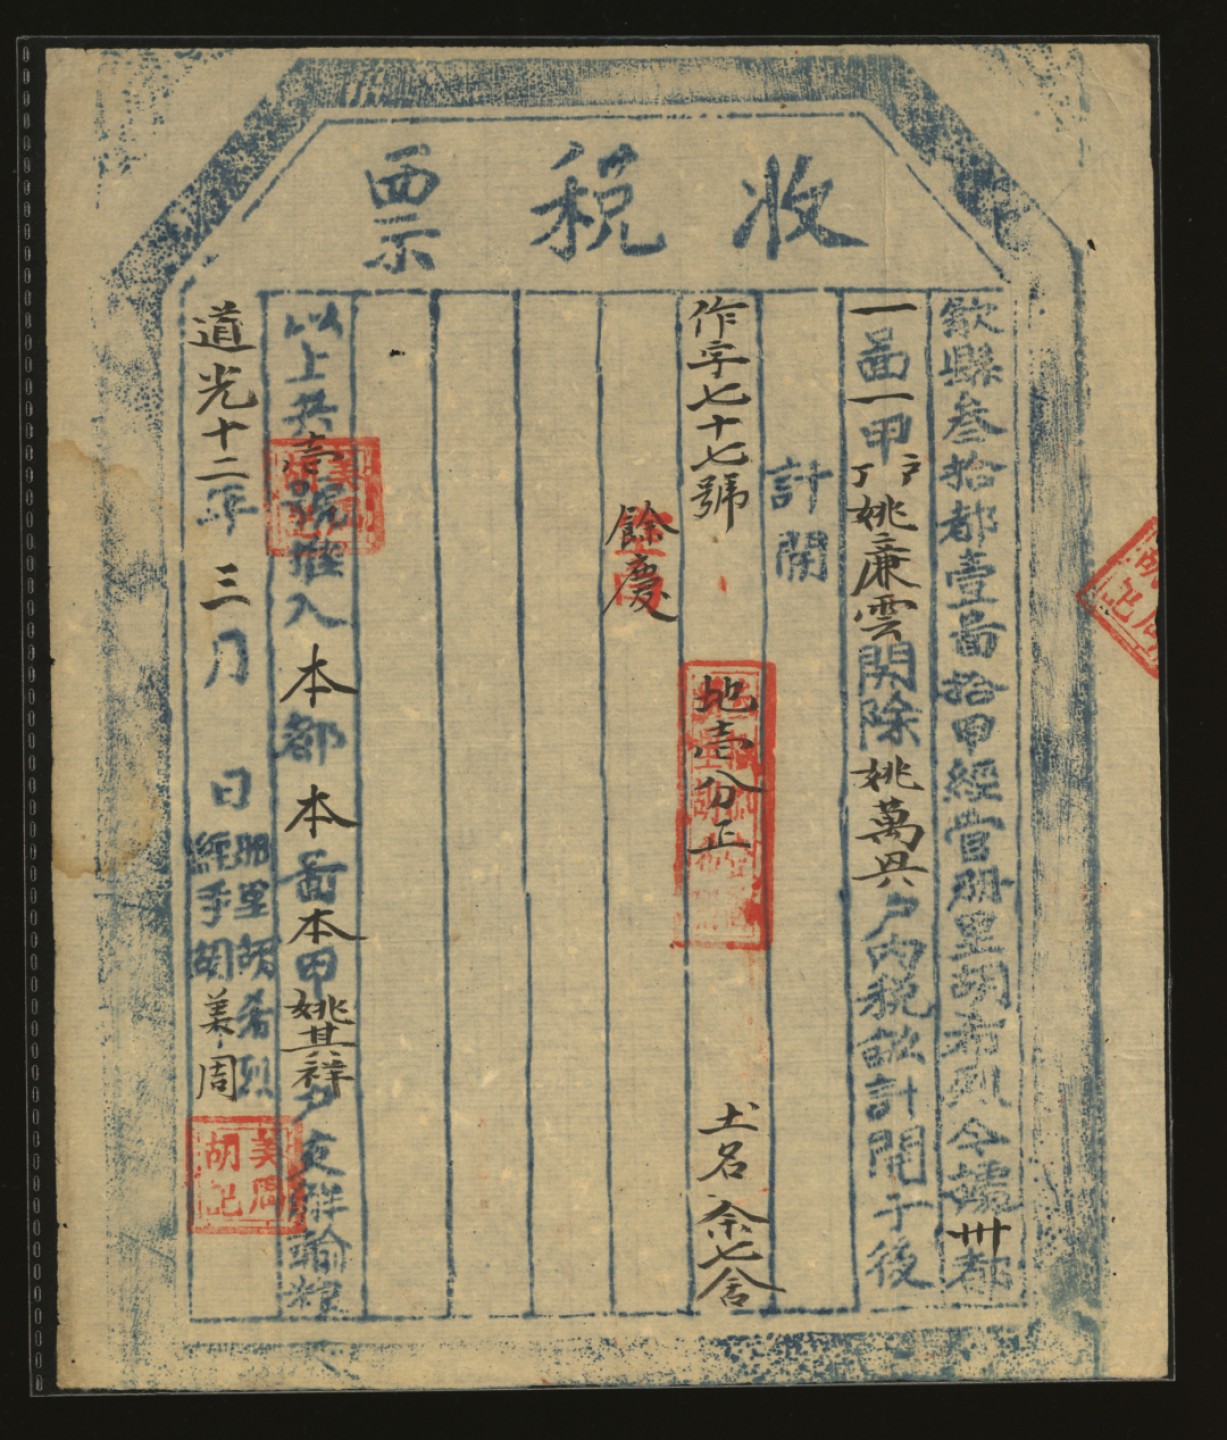 收稅票
歙縣叁拾都壹啚拾甲經管冊里胡希烈今據卅都
一啚一甲戶丁姚廉雲開除姚萬興戶內稅訟計開于後
計開
作字七十七號 地壹分正 土名余七舍
餘慶
以上共壹號推入本都本啚本甲姚其祥戶支解輸糧
道光十二年三月 日冊里胡希烈
經手胡美周
美周胡記